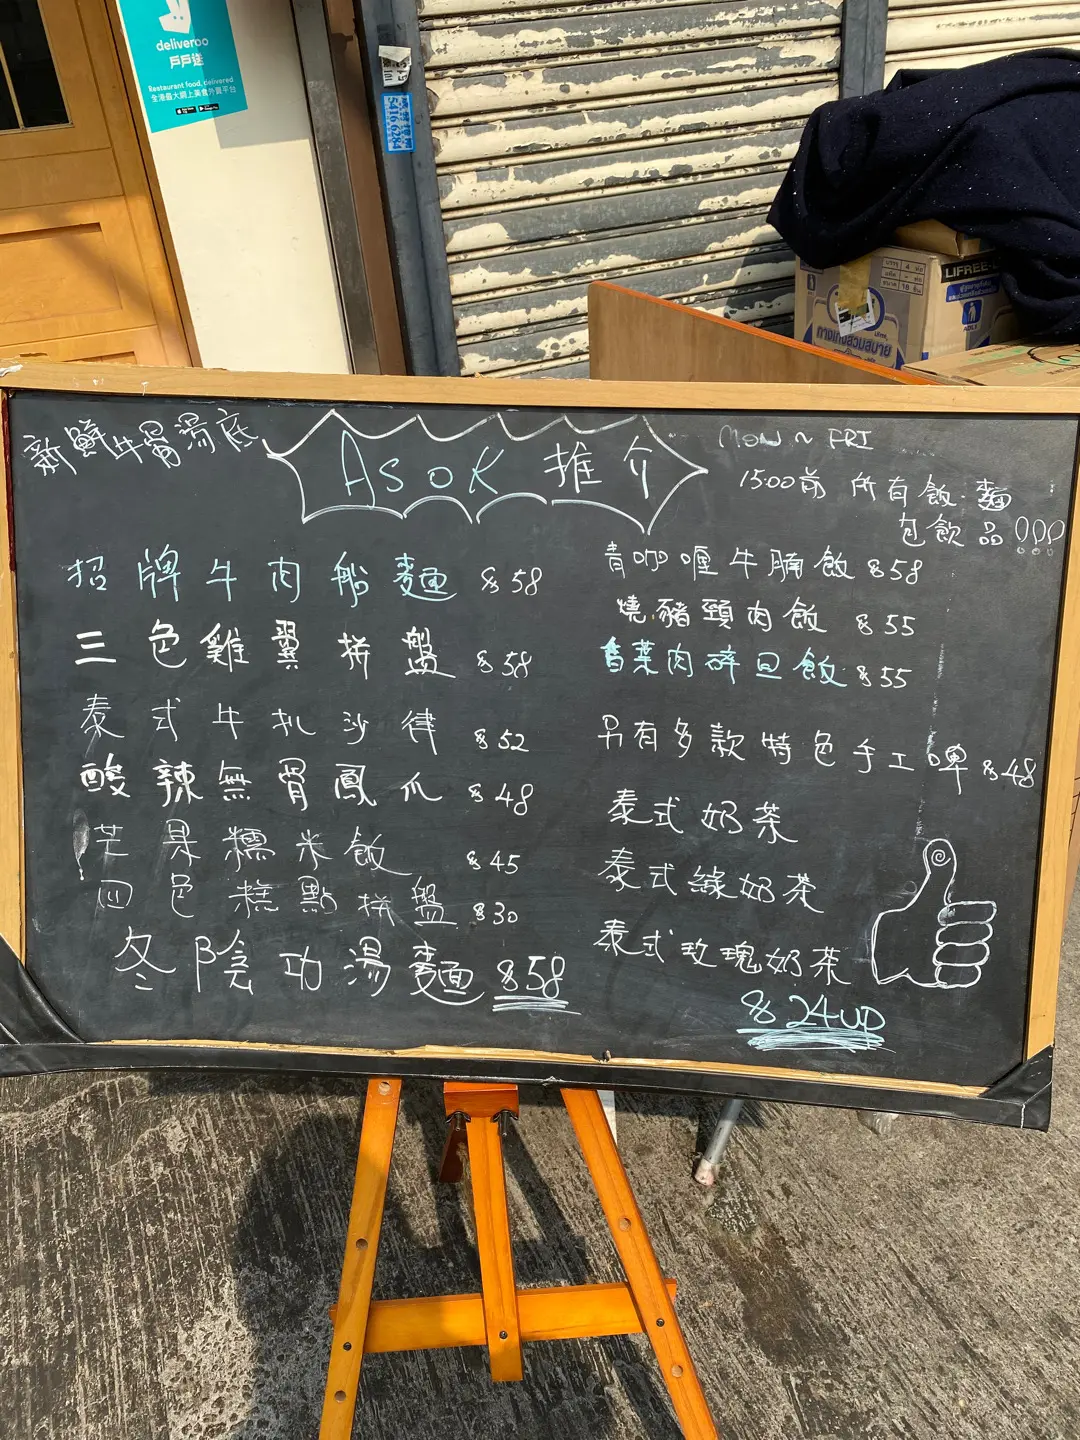 deliveroo
戶戶送
Restaurant food, delivered
全港最大網上美食外賣平台
LIFREE
ADL
กางเกงสวมสบาย
新鮮牛骨湯底
ASOK 推介
MON ~ FRI
15:00前 所有飯.麵
包飲品!!!
招牌牛肉船麵 $58
三色雞翼拼盤 $58
泰式牛扒沙律 $52
酸辣無骨鳳爪 $48
芒果糯米飯 $45
四色糕點拼盤 $30
冬陰功湯麵 $58
青咖喱牛腩飯 $58
燒豬頸肉飯 $55
香葉肉碎旦飯 $55
另有多款特色手工啤 $48
泰式奶茶
泰式綠奶茶
泰式玫瑰奶茶
$24up